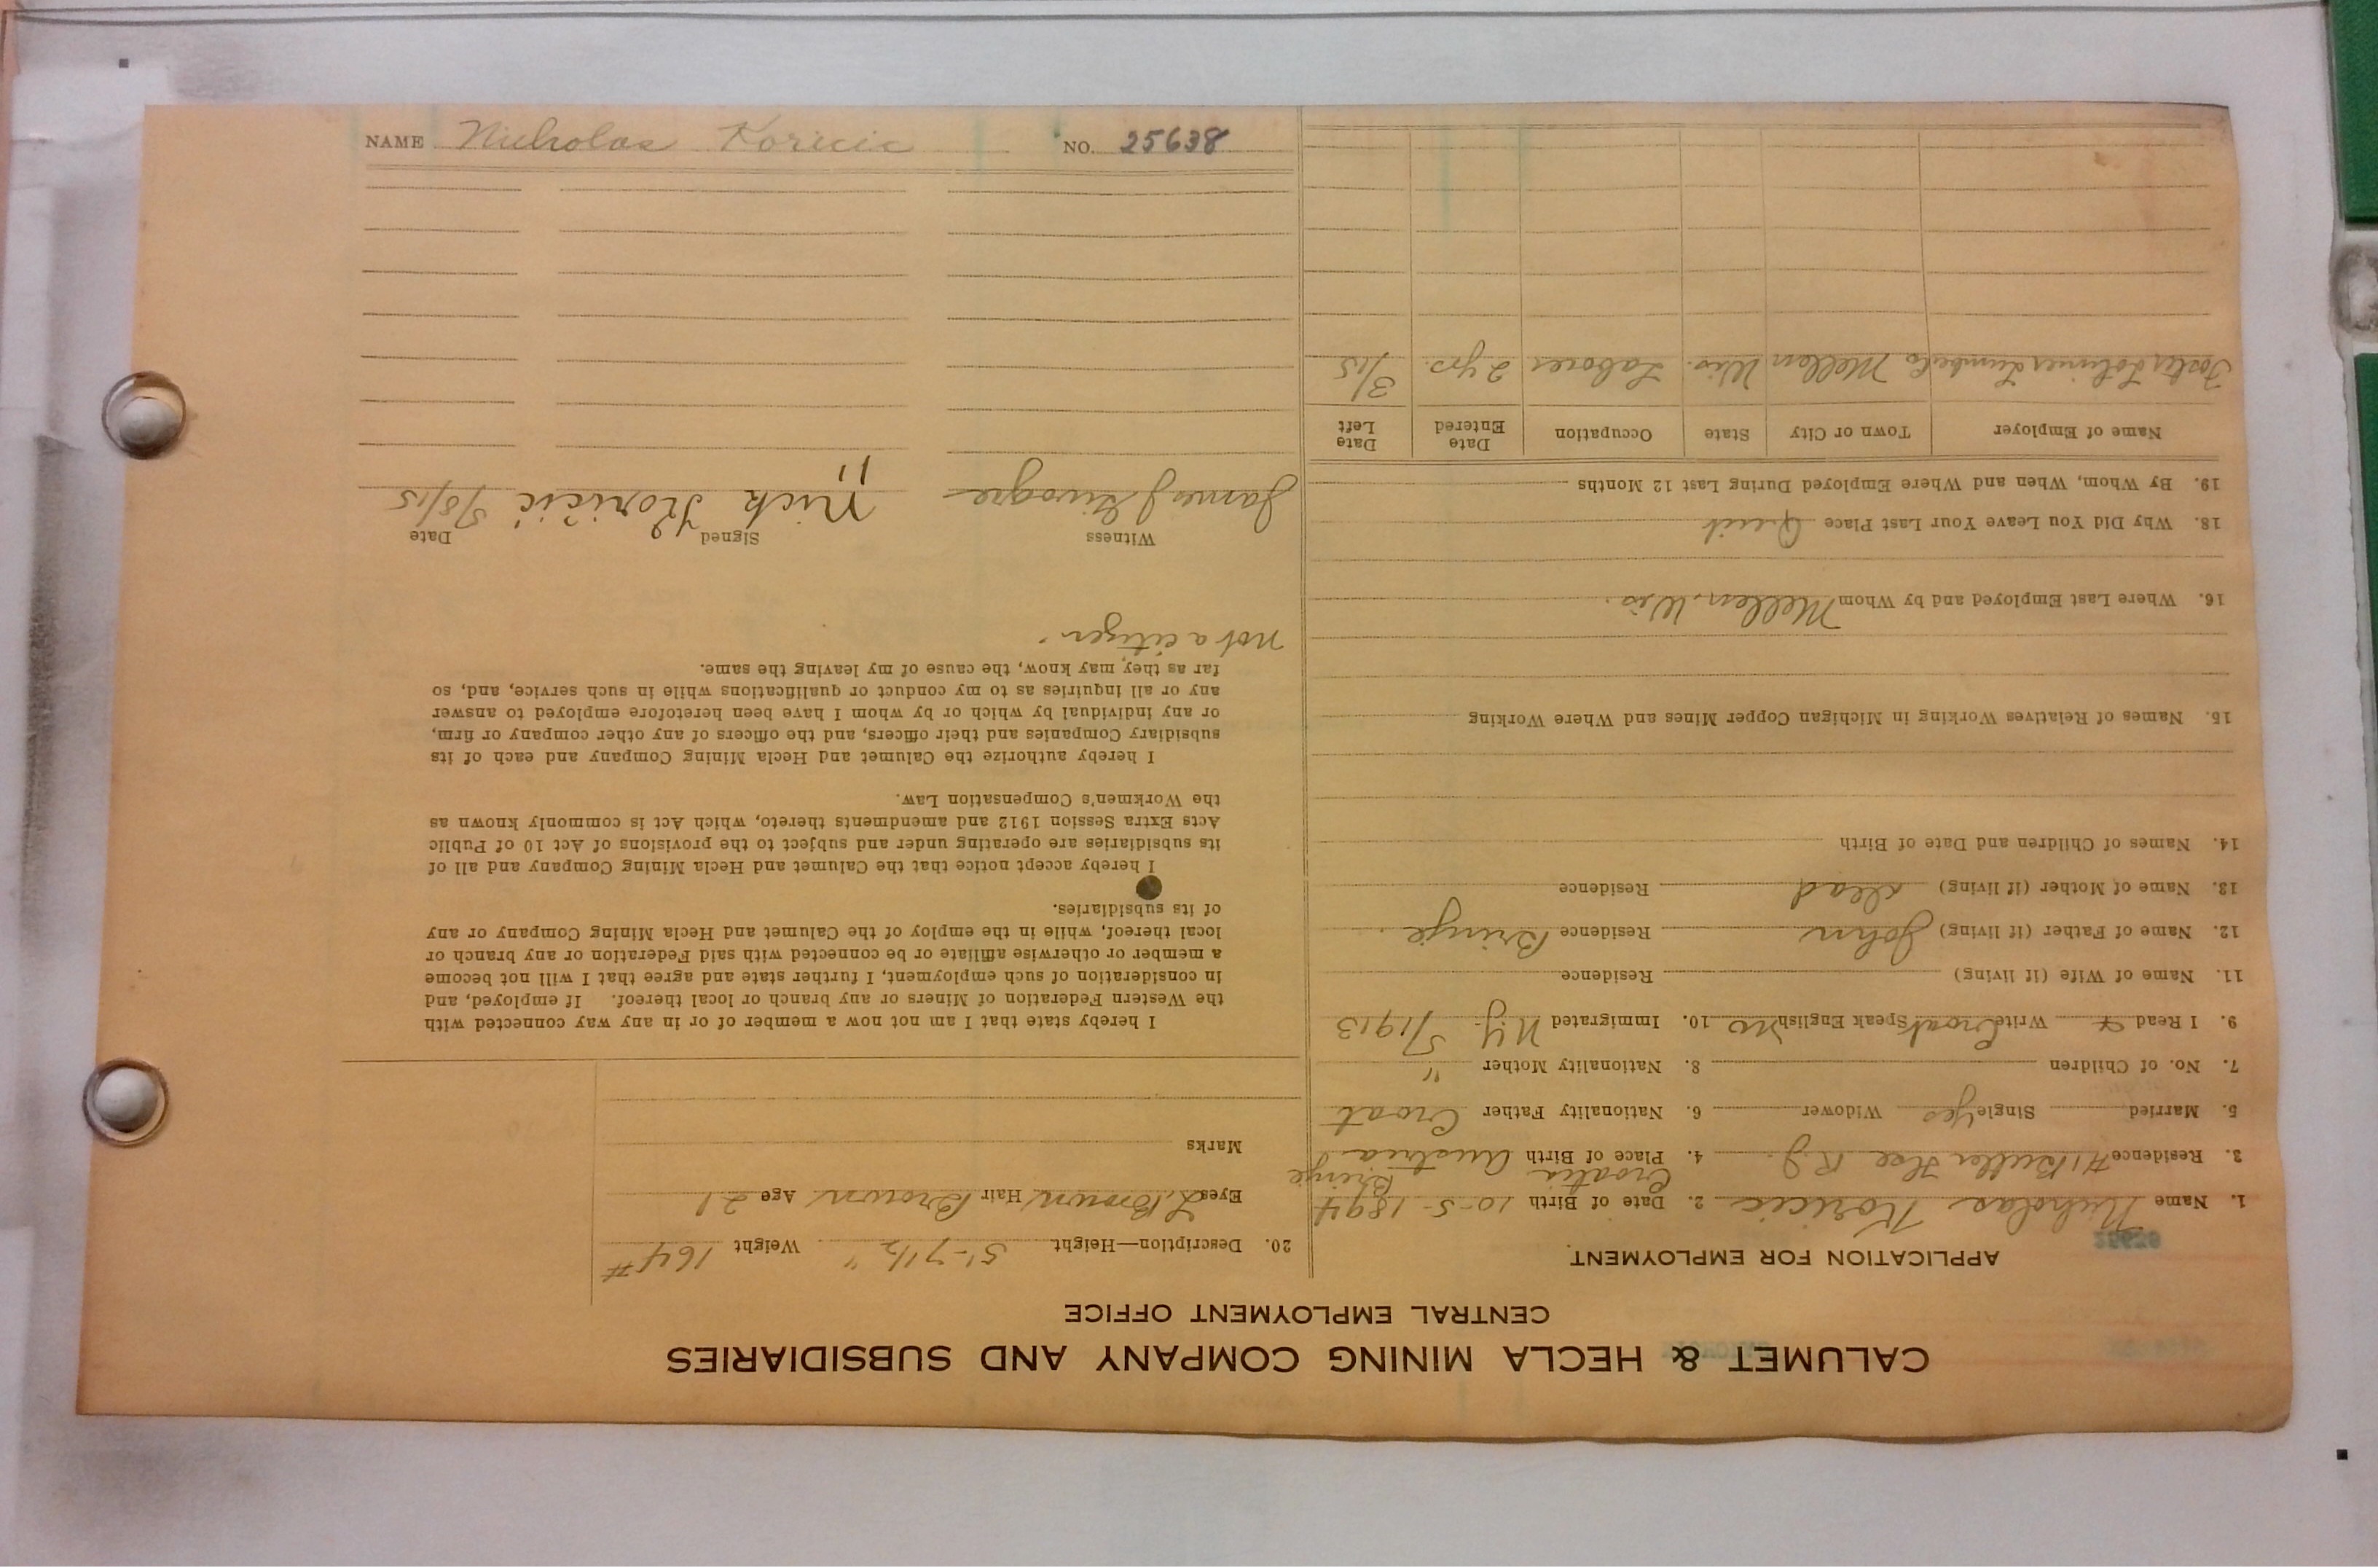 CALUMET & HECLA MINING COMPANY AND SUBSIDIARIES
CENTRAL EMPLOYMENT OFFICE
APPLICATION FOR EMPLOYMENT.
25638
1. Name Nicholas Koricic 2. Date of Birth 10-5-1894
Croatia Brinje
3. Residence #1 Butler Hse R.J. 4. Place of Birth Austria
5. Married Single Yes Widower 6. Nationality Father Croat
7. No. of Children 8. Nationality Mother "
9. I Read & Write Croat Speak English No 10. Immigrated N.Y. 5/1913
11. Name of Wife (if living) Residence
12. Name of Father (if living) John Residence Brinje
13. Name of Mother (if living) dead Residence
14. Names of Children and Date of Birth
15. Names of Relatives Working in Michigan Copper Mines and Where Working
16. Where Last Employed and by Whom Mellen, Wis.
18. Why Did You Leave Your Last Place Quit
19. By Whom, When and Where Employed During Last 12 Months
Name of Employer Town or City State Occupation Date Entered Date Left
Foster Latimer Lumber Co Mellen Wis. Laborer 2 yrs. 3/15
20. Description—Height 5'-7 1/2" Weight 164#
Eyes L. Brown Hair Brown Age 21
Marks
I hereby state that I am not now a member of or in any way connected with
the Western Federation of Miners or any branch or local thereof. If employed, and
in consideration of such employment, I further state and agree that I will not become
a member or otherwise affiliate or be connected with said Federation or any branch or
local thereof, while in the employ of the Calumet and Hecla Mining Company or any
of its subsidiaries.
I hereby accept notice that the Calumet and Hecla Mining Company and all of
its subsidiaries are operating under and subject to the provisions of Act 10 of Public
Acts Extra Session 1912 and amendments thereto, which Act is commonly known as
the Workmen's Compensation Law.
I hereby authorize the Calumet and Hecla Mining Company and each of its
subsidiary Companies and their officers, and the officers of any other company or firm,
or any individual by which or by whom I have been heretofore employed to answer
any or all inquiries as to my conduct or qualifications while in such service, and, so
far as they may know, the cause of my leaving the same.
not a citizen.
Witness Signed Date
James J Nick Koričić 5/8/15
NAME Nicholas Koricic NO. 25638